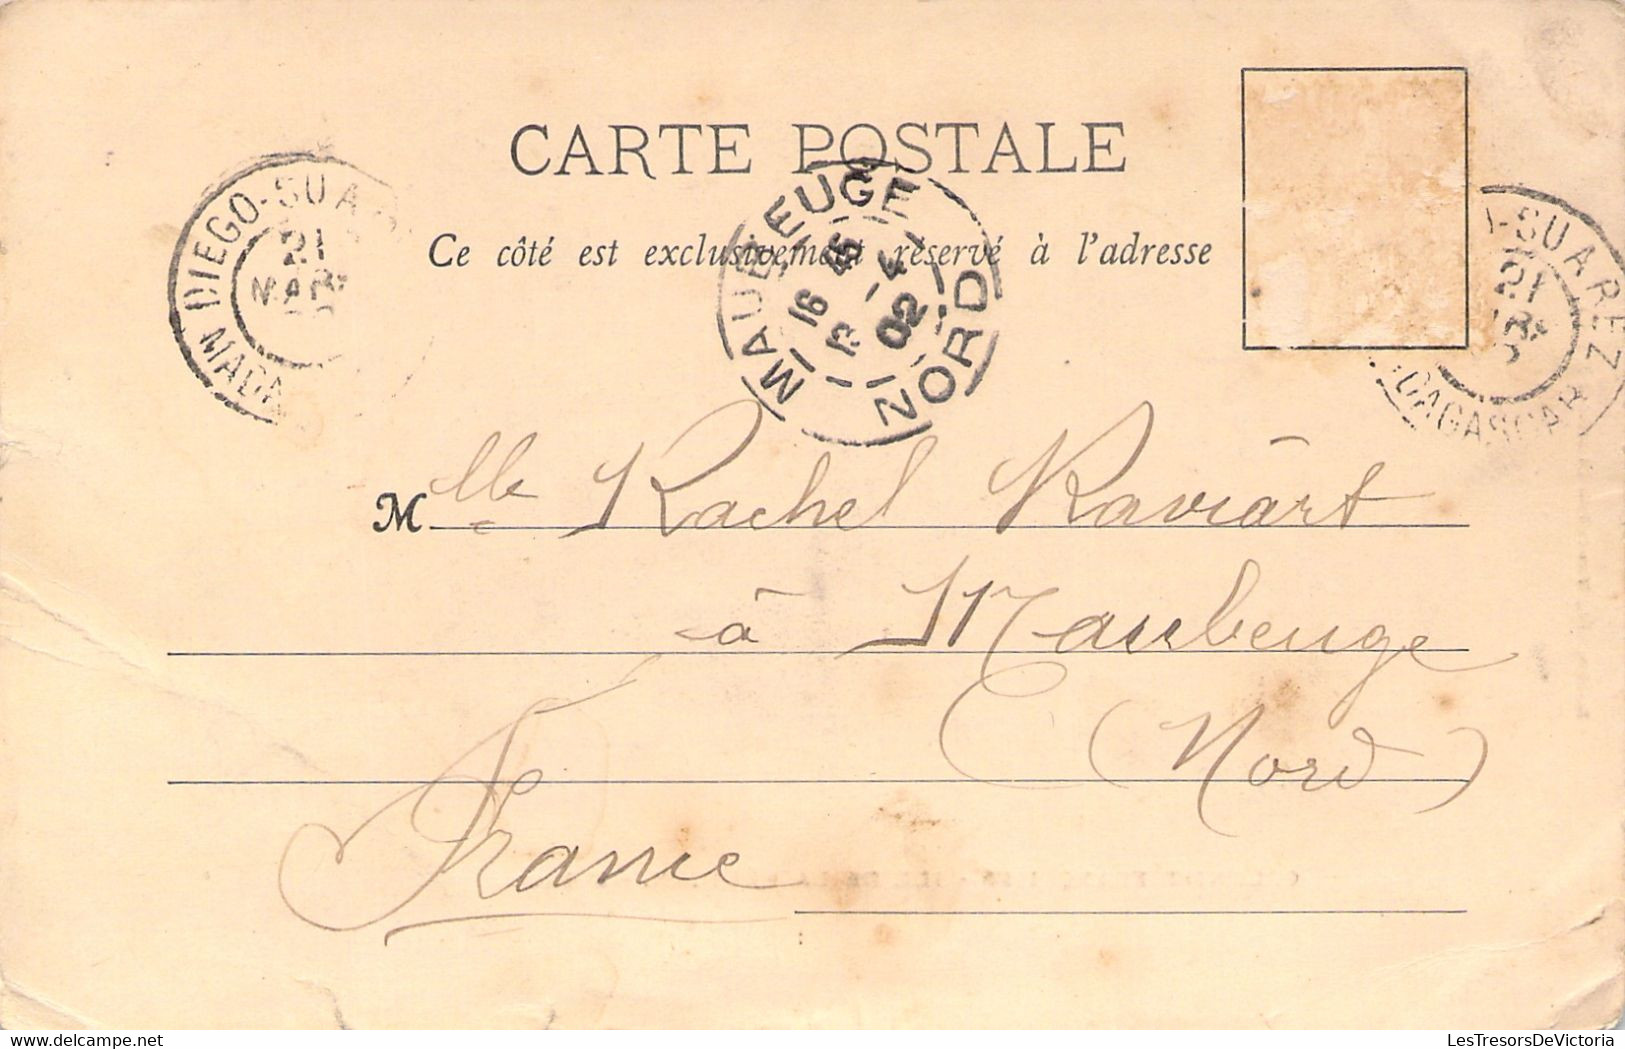 CARTE POSTALE
Ce côté est exclusivement réservé à l'adresse
DIEGO-SUAR
21
MARS
MADA
MAUBEUGE
16 45
13 -4
02
NORD
-SUAREZ
21
DAGASCAR
Mlle Rachel Raviart
à Maubeuge
(Nord)
France
LesTresorsDeVictoria